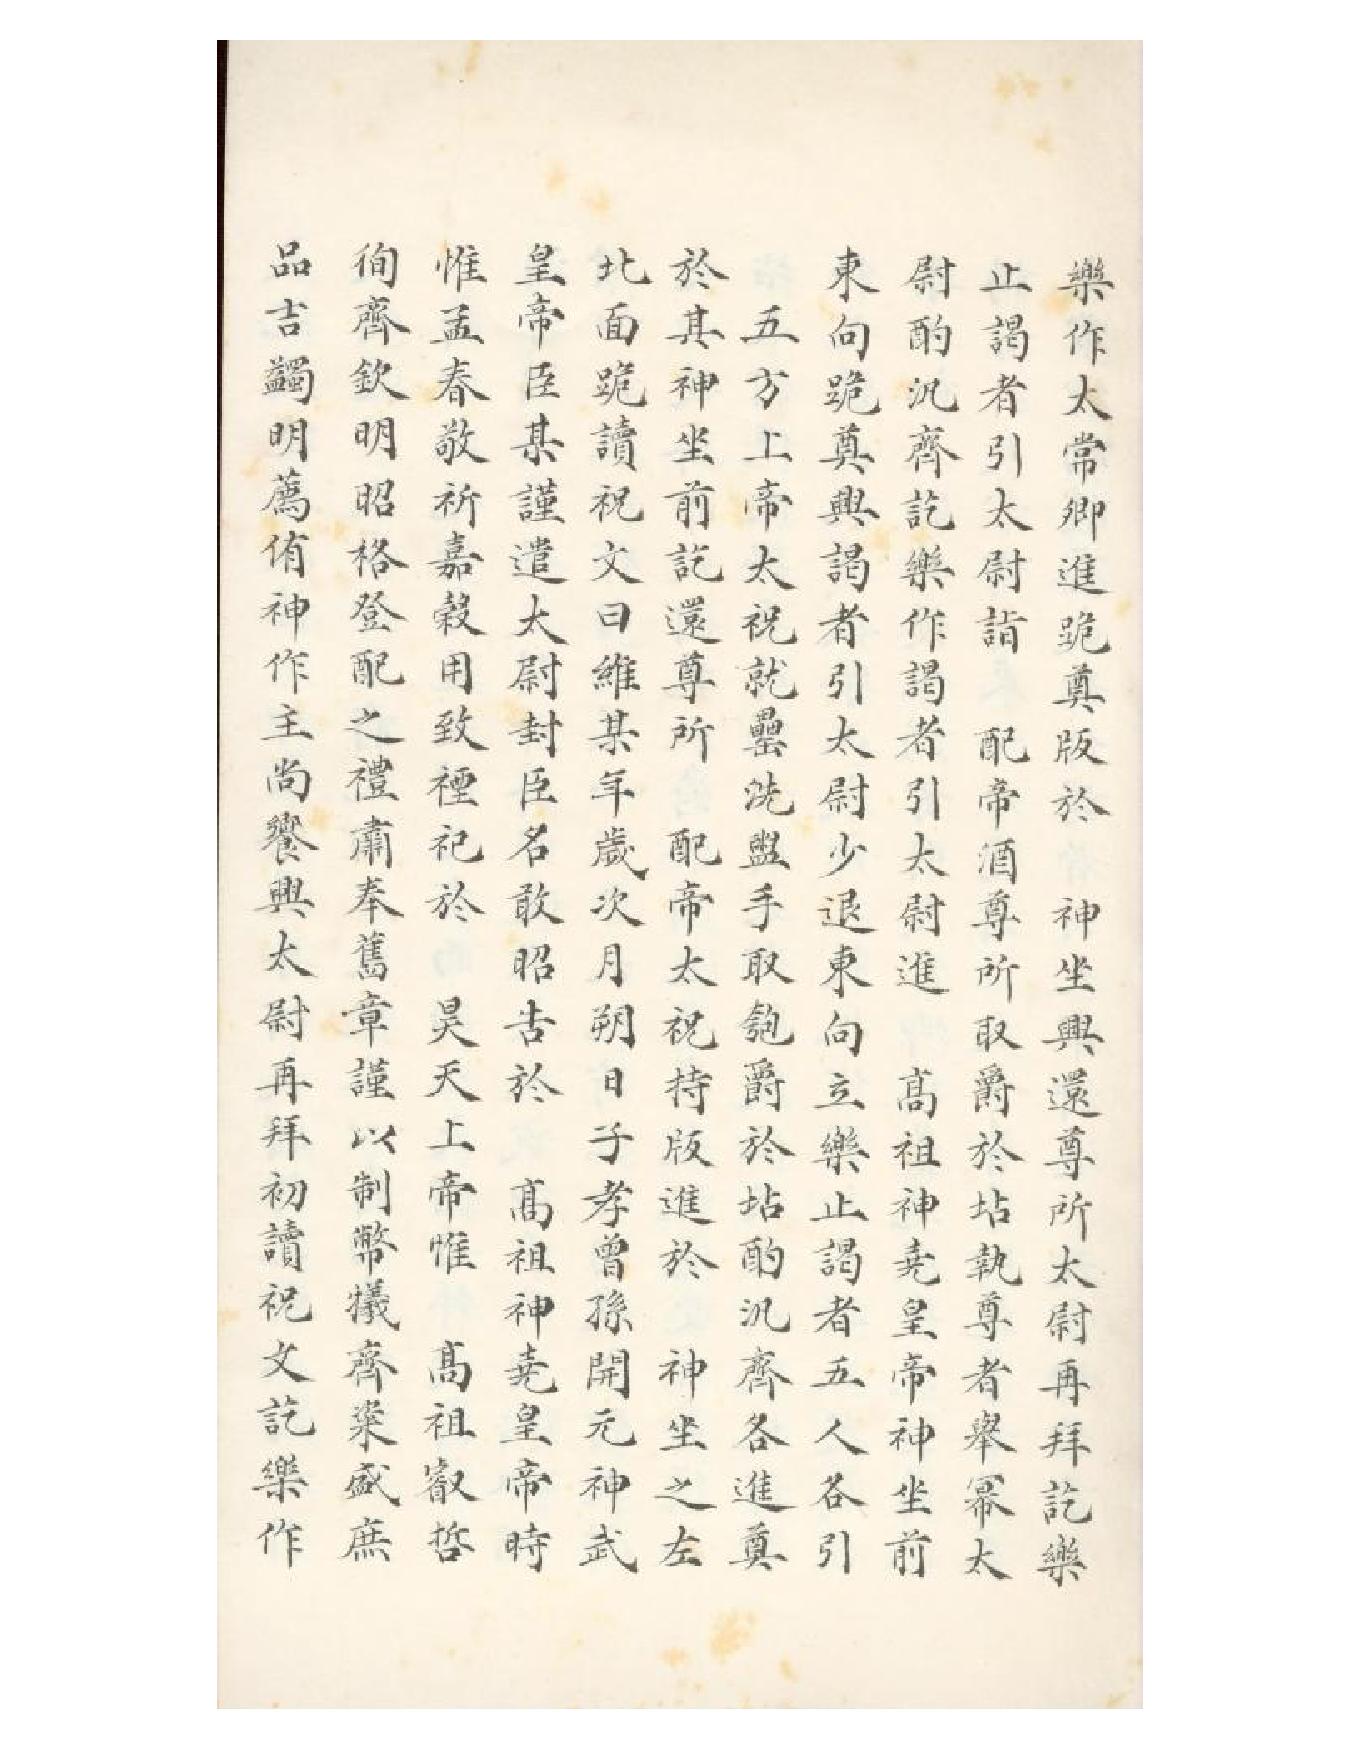 樂作太常卿進跪奠版於　神坐興還尊所太尉再拜訖樂
止謁者引太尉詣　配帝酒尊所取爵於坫執尊者舉冪太
尉酌汎齊訖樂作謁者引太尉進　高祖神堯皇帝神坐前
東向跪奠興謁者引太尉少退東向立樂止謁者五人各引
五方上帝太祝就罍洗盥手取匏爵於坫酌汎齊各進奠
於其神坐前訖還尊所　配帝太祝持版進於　神坐之左
北面跪讀祝文曰維某年歲次月朔日子孝曾孫開元神武
皇帝臣某謹遣太尉封臣名敢昭告於　高祖神堯皇帝時
惟孟春敬祈嘉穀用致禋祀於　昊天上帝惟　高祖叡哲
徇齊欽明昭格登配之禮肅奉舊章謹以制幣犧齊粢盛庶
品吉蠲明薦侑神作主尚饗興太尉再拜初讀祝文訖樂作